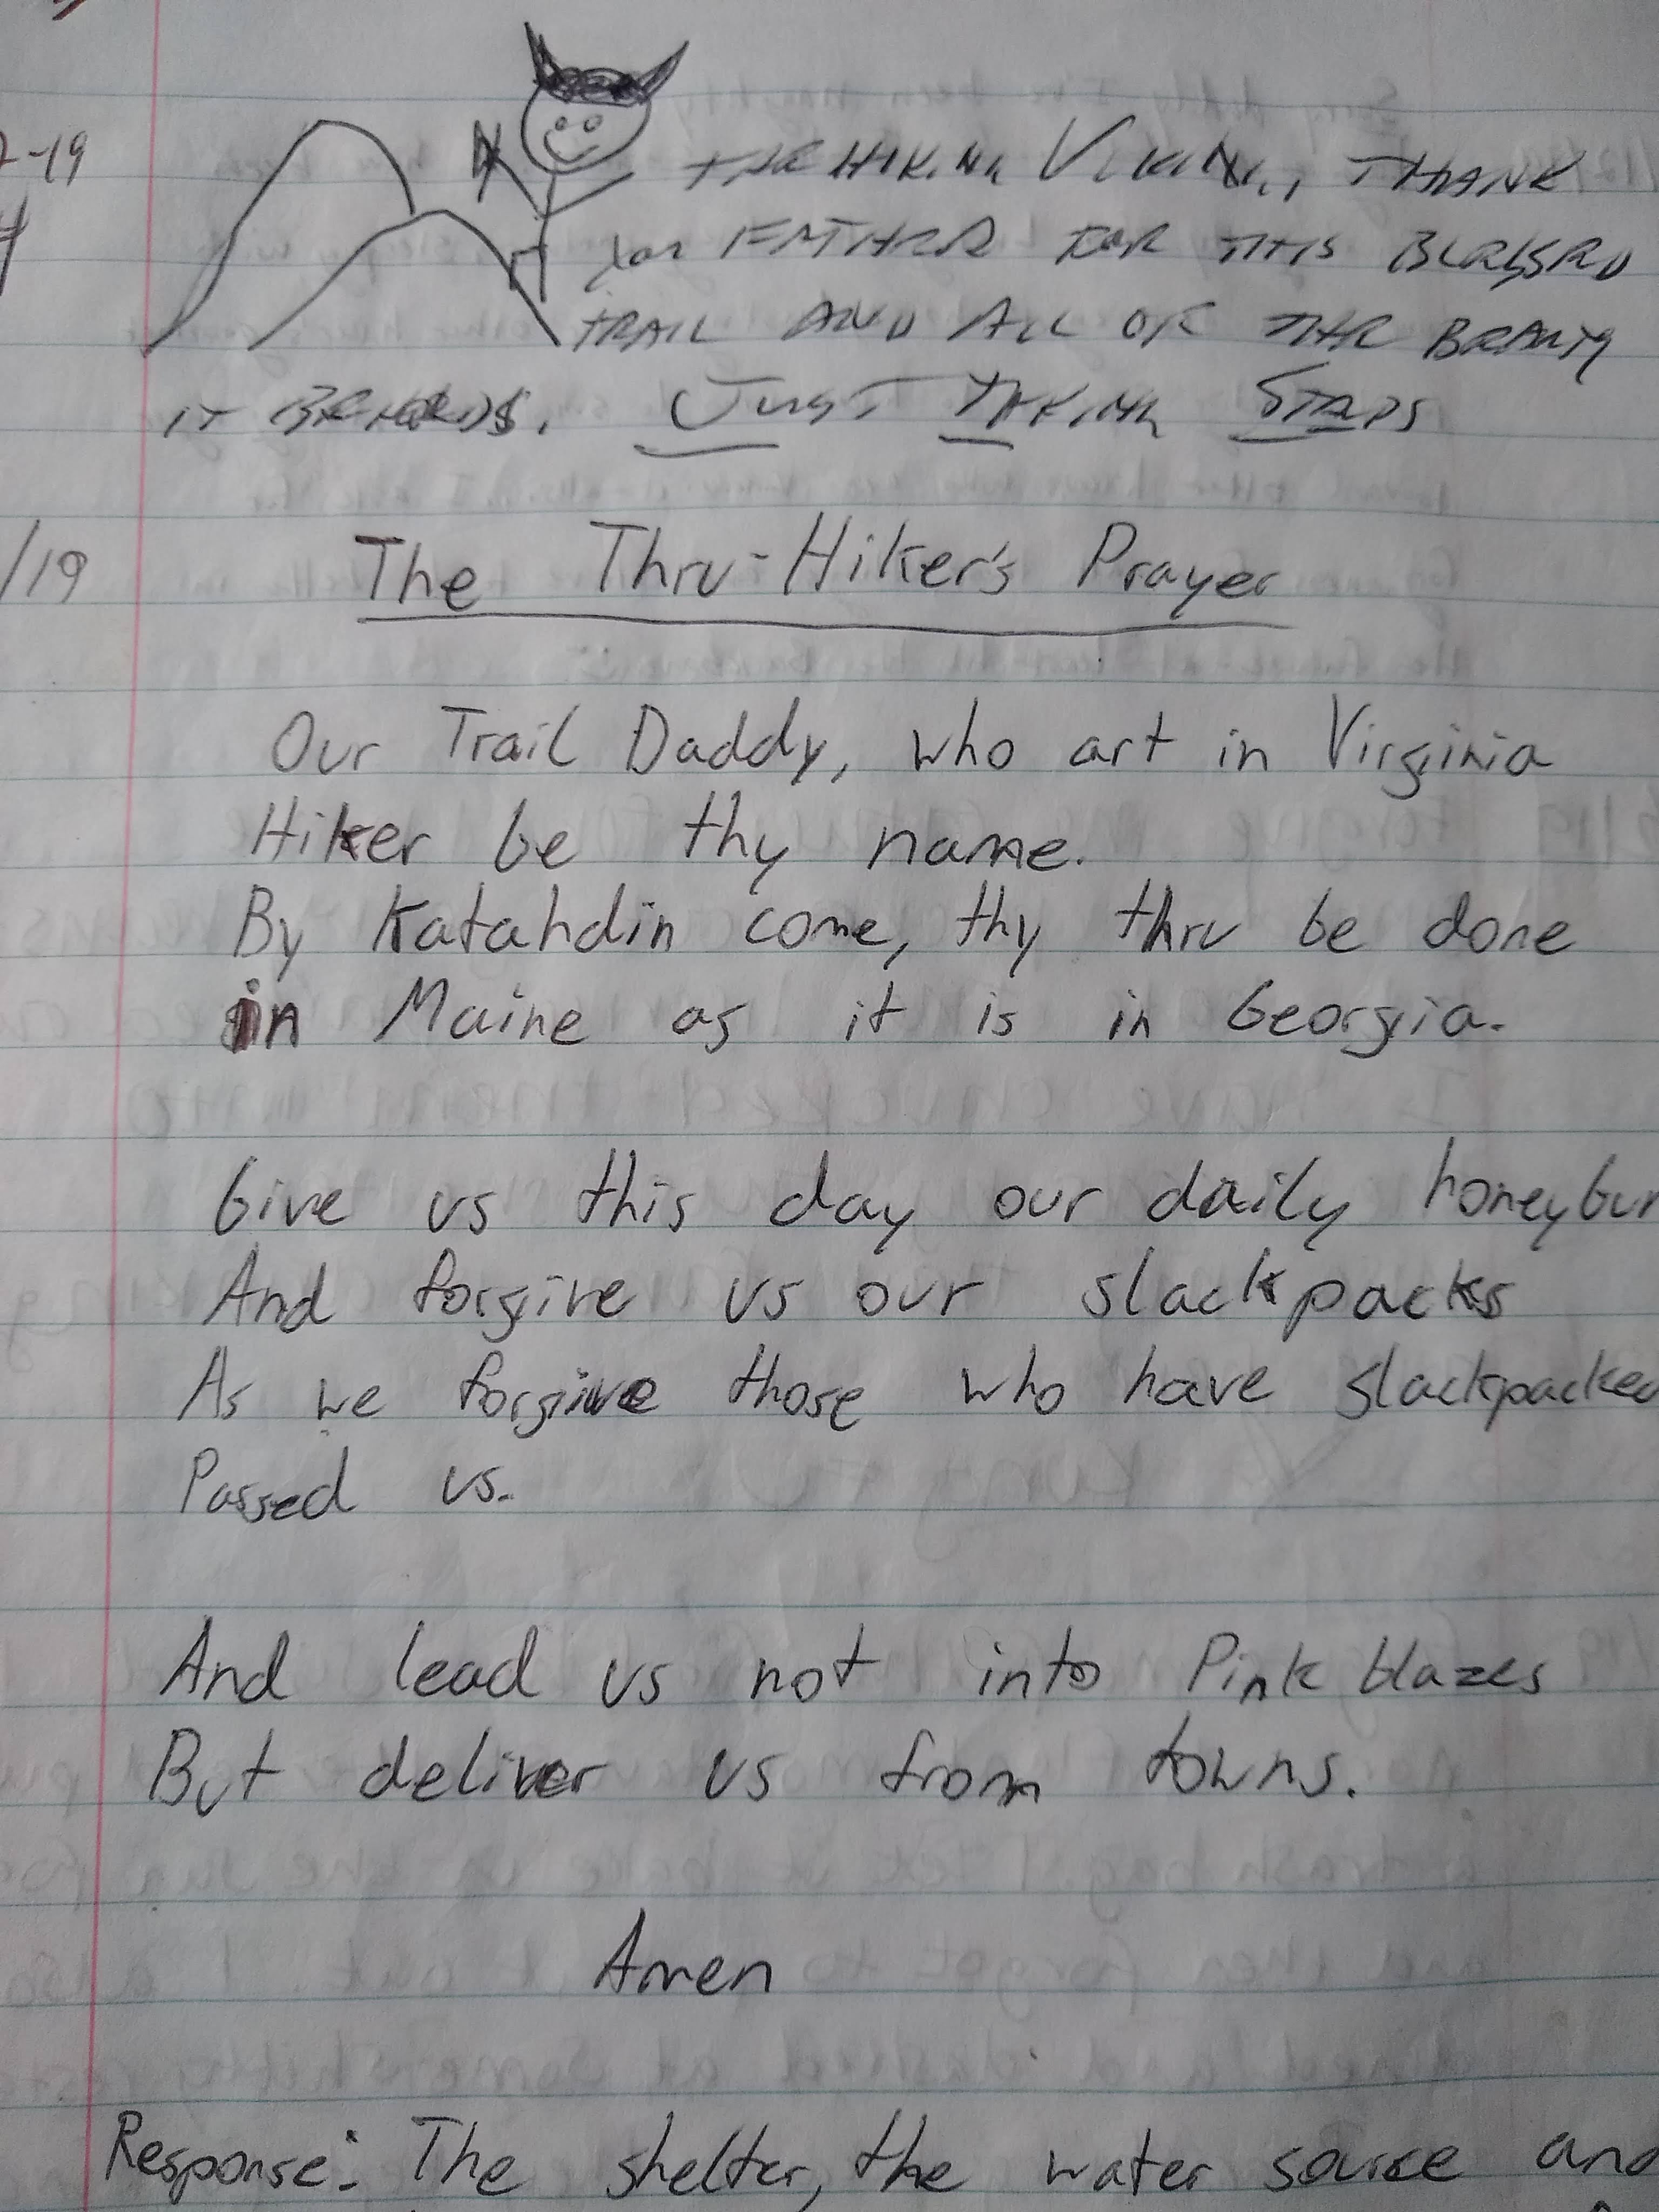 -19
THE HIKING VIKING, THANK
you FATHER FOR THIS BLESSED
TRAIL AND ALL OF THE BEAUTY
IT BEHOLDS. JUST TAKING STEPS
/19 The Thru-Hiker's Prayer
Our Trail Daddy, who art in Virginia
Hiker be thy name.
By Katahdin come, thy thru be done
in Maine as it is in Georgia.
Give us this day our daily honeybun
And forgive us our slackpacks
As we forgive those who have slackpacked
Passed us.
And lead us not into Pink blazes
But deliver us from towns.
Amen
Response: The shelter, the water source and